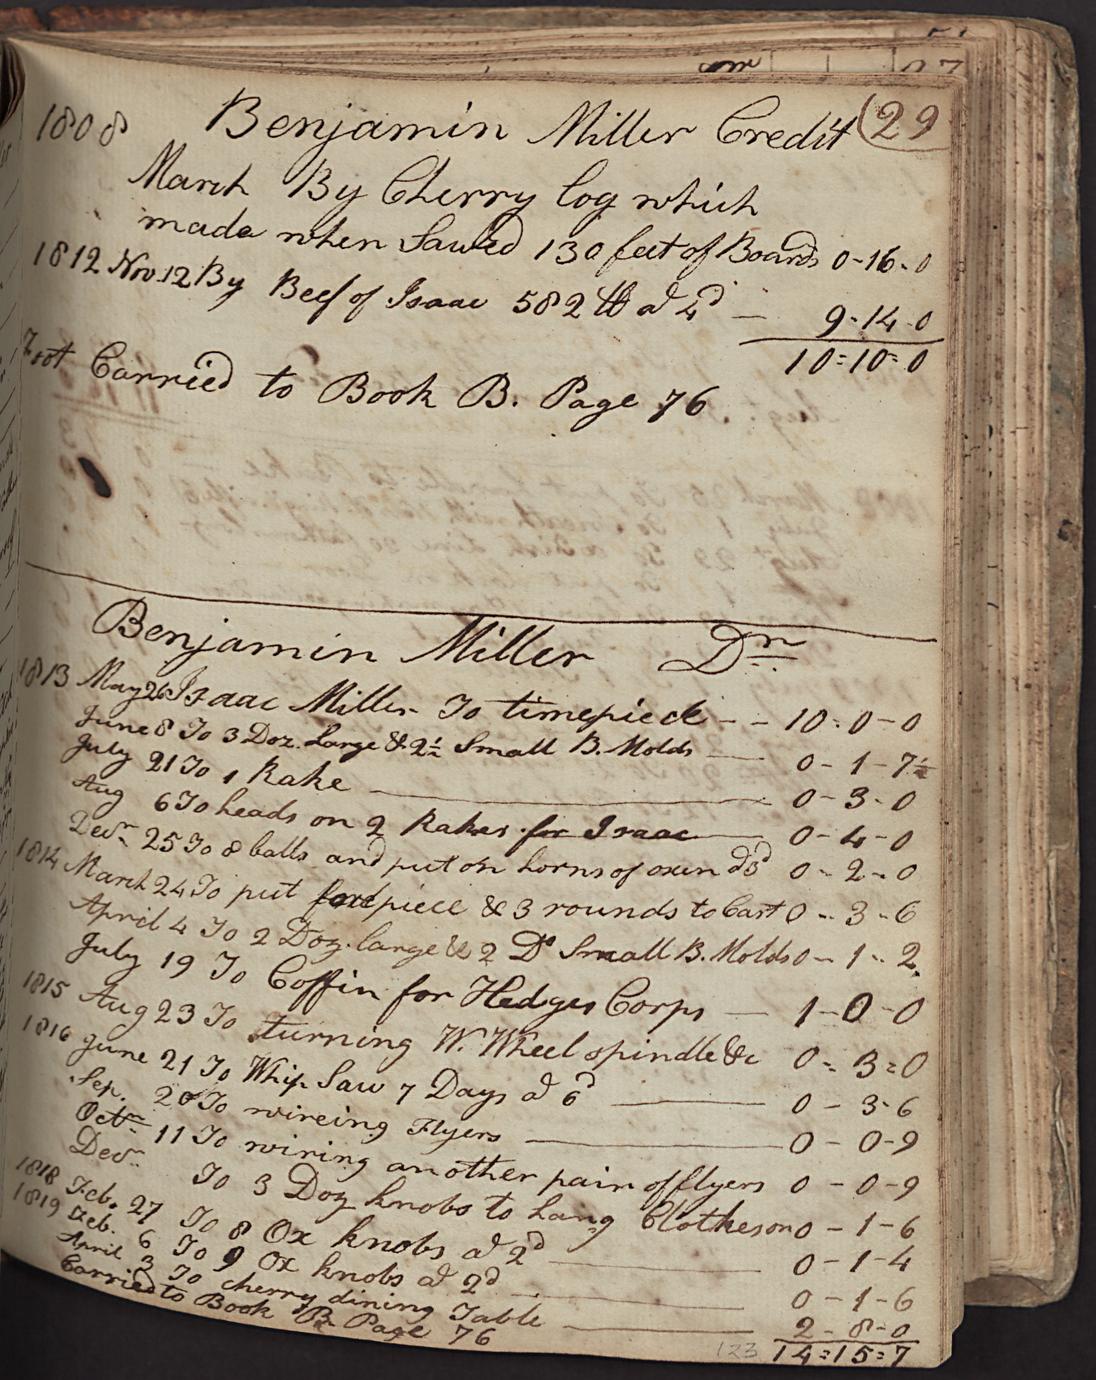 (29
1808 Benjamin Miller Credit
March By Cherry log which
made when Sawed 130 feet of Boards 0-16-0
1812 Nov. 12 By Beef of Isaac 582 lb at 4d — 9-14-0
10=10=0
Foot Carried to Book B. Page 76
Benjamin Miller Dr
1813 May 26 Isaac Miller To timepiece -- 10-0-0
June 8 To 3 Doz. Large & 2½ Small B. Molds — 0-1-7½
July 21 To 1 Rake — 0-3-0
Aug 6 To heads on 2 Rakes for Isaac — 0-4-0
Decr. 25 To 8 balls and put on horns of oxen at 3d 0-2-0
1814 March 24 To put piece & 3 rounds to Cart 0-3-6
April 4 To 2 Doz. large & 2 Do Small B. Molds 0-1-2
July 19 To Coffin for Hedges Corps — 1-0-0
1815 Aug 23 To turning W. Wheel spindle &c 0-3=0
1816 June 21 To Whip Saw 7 Days at 6d — 0-3-6
Sep. 20 To wireing Flyers — 0-0-9
Octr 11 To wiring another pair of flyers 0-0-9
Decr To 3 Doz knobs to hang Clothes on 0-1-6
1818 Feb. 27 To 8 Ox knobs at 2d — 0-1-4
1819 Feb. 6 To 9 Ox knobs at 2d — 0-1-6
April 3 To cherry dining Table — 2-8-0
Carried to Book B. Page 76 123 14=15=7